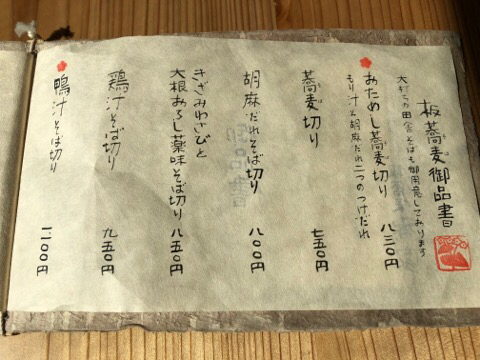 板蕎麦御品書
太打ちの田舎そばも御用意してあります
おためし蕎麦切り 八三〇円
もり汁と胡麻だれ二つのつけだれ
蕎麦切り 七五〇円
胡麻だれそば切り 八〇〇円
きざみわさびと
大根おろし薬味そば切り 八五〇円
鶏汁そば切り 九五〇円
鴨汁そば切り 一二〇〇円